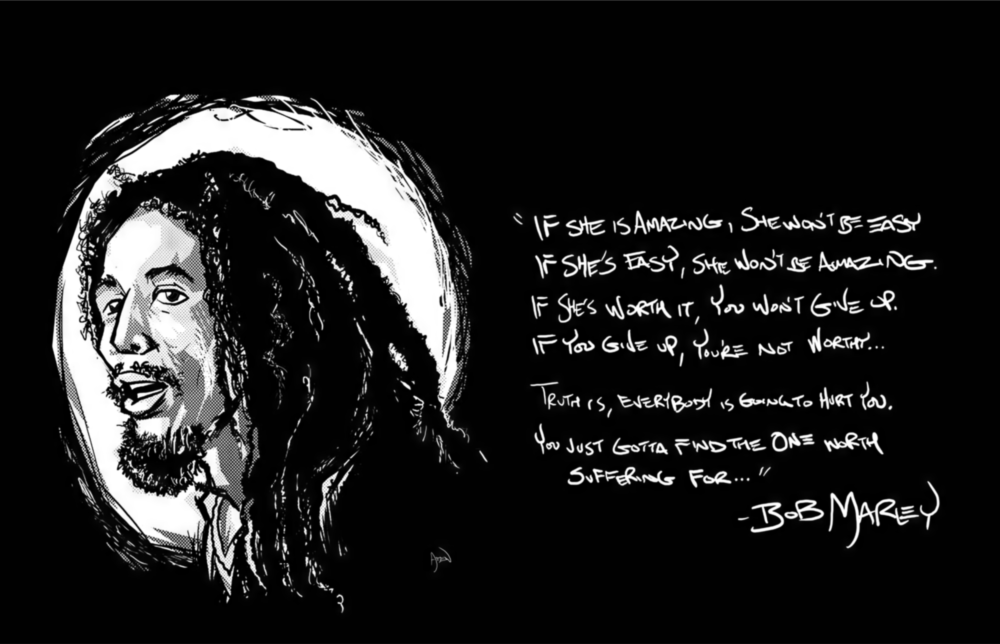 "IF SHE IS AMAZING, SHE WON'T BE EASY
IF SHE'S EASY, SHE WON'T BE AMAZING.
IF SHE'S WORTH IT, YOU WON'T GIVE UP.
IF YOU GIVE UP, YOU'RE NOT WORTHY...
TRUTH IS, EVERYBODY IS GOING TO HURT YOU.
YOU JUST GOTTA FIND THE ONE WORTH
SUFFERING FOR..."
-BOB MARLEY